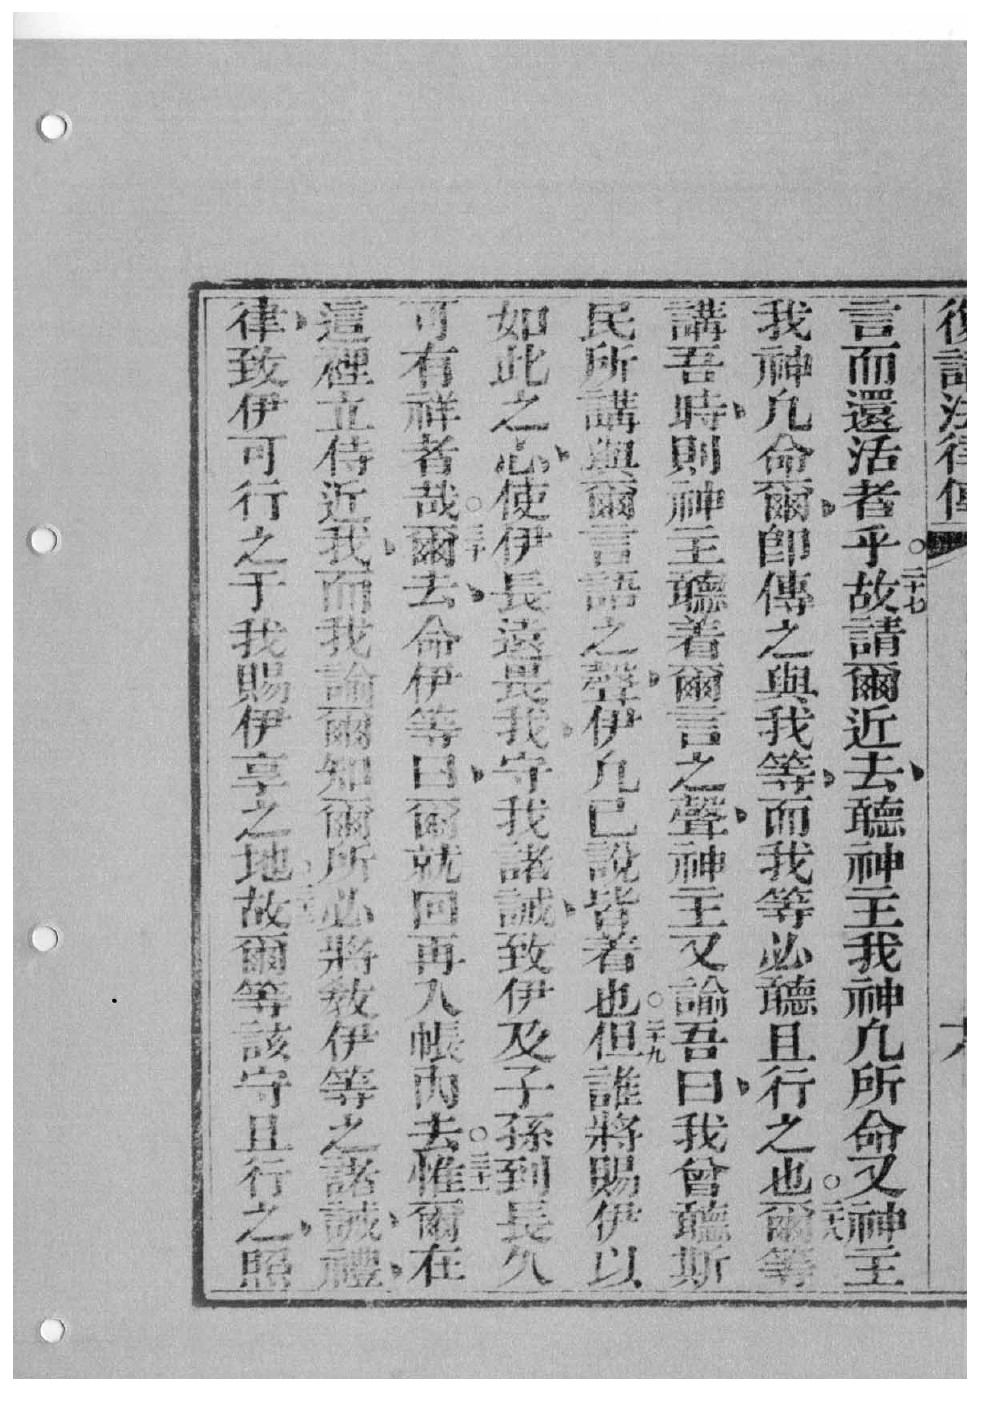 復講法律傳 六
言而還活者乎。二十七故請爾近去聽神主我神凢所命又神主
我神凢命爾即傳之與我等而我等必聽且行之也。二十八爾等
講吾時則神主聽着爾言之聲神主又諭吾曰我曾聽斯
民所講與爾言語之聲伊凢已說皆着也。二十九但誰將賜伊以
如此之心使伊長遠畏我守我諸誡致伊及子孫到長久
可有祥者哉。三十爾去命伊等曰爾就回再入帳內去。三十一惟爾在
這裡立侍近我而我諭爾知爾所必將敎伊等之諸誡禮
律致伊可行之于我賜伊享之地故爾等該守且行之照